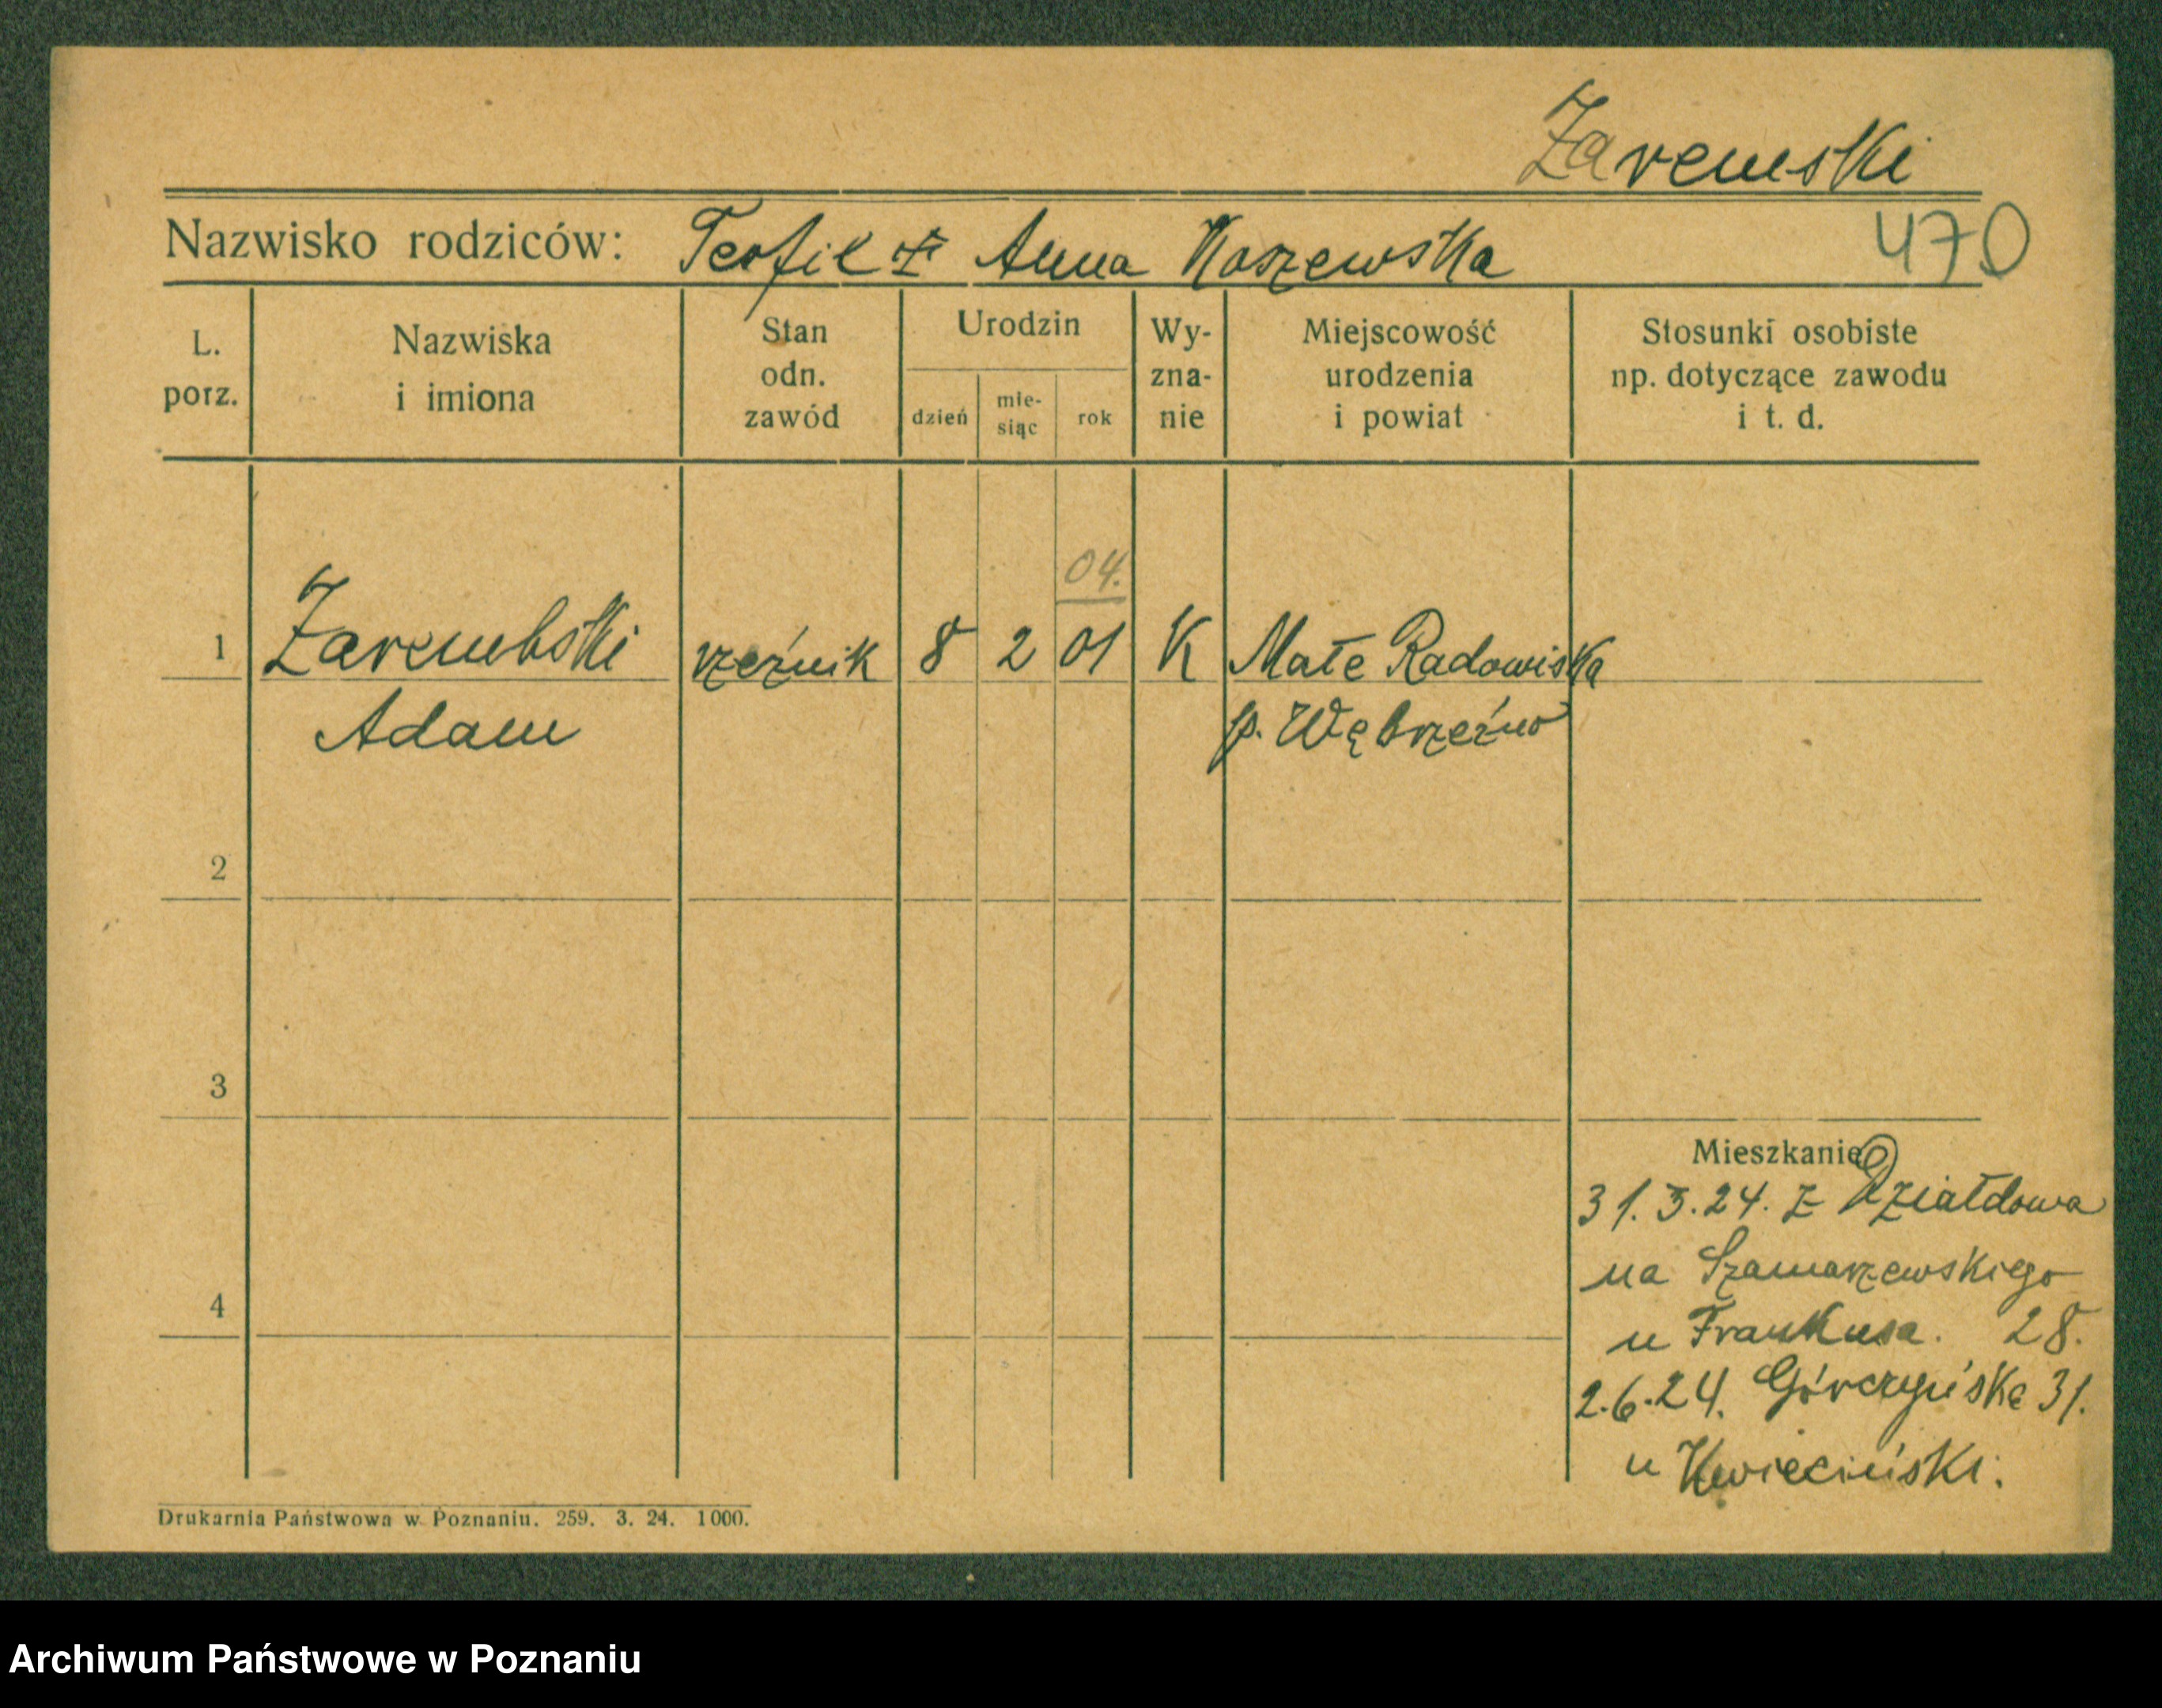 Zaremski
Nazwisko rodziców: Teofil Ż Anna Koszewska
470
L. porz.
Nazwiska i imiona
Stan odn. zawód
Urodzin
dzień
mie- siąc
rok
Wy- zna- nie
Miejscowość urodzenia i powiat
Stosunki osobiste np. dotyczące zawodu i t. d.
04.
1 Zarembski rzeźnik 8 2 01 K Małe Radowiska
Adam p. Wębrzeźno
2
3
Mieszkanie
31.3.24. z Działdowa
na Szamarzewskiego
4
u Frankusa. 28.
2.6.24. Górczyńska 31.
u Kwieciński.
Drukarnia Państwowa w Poznaniu. 259. 3. 24. 1000.
Archiwum Państwowe w Poznaniu